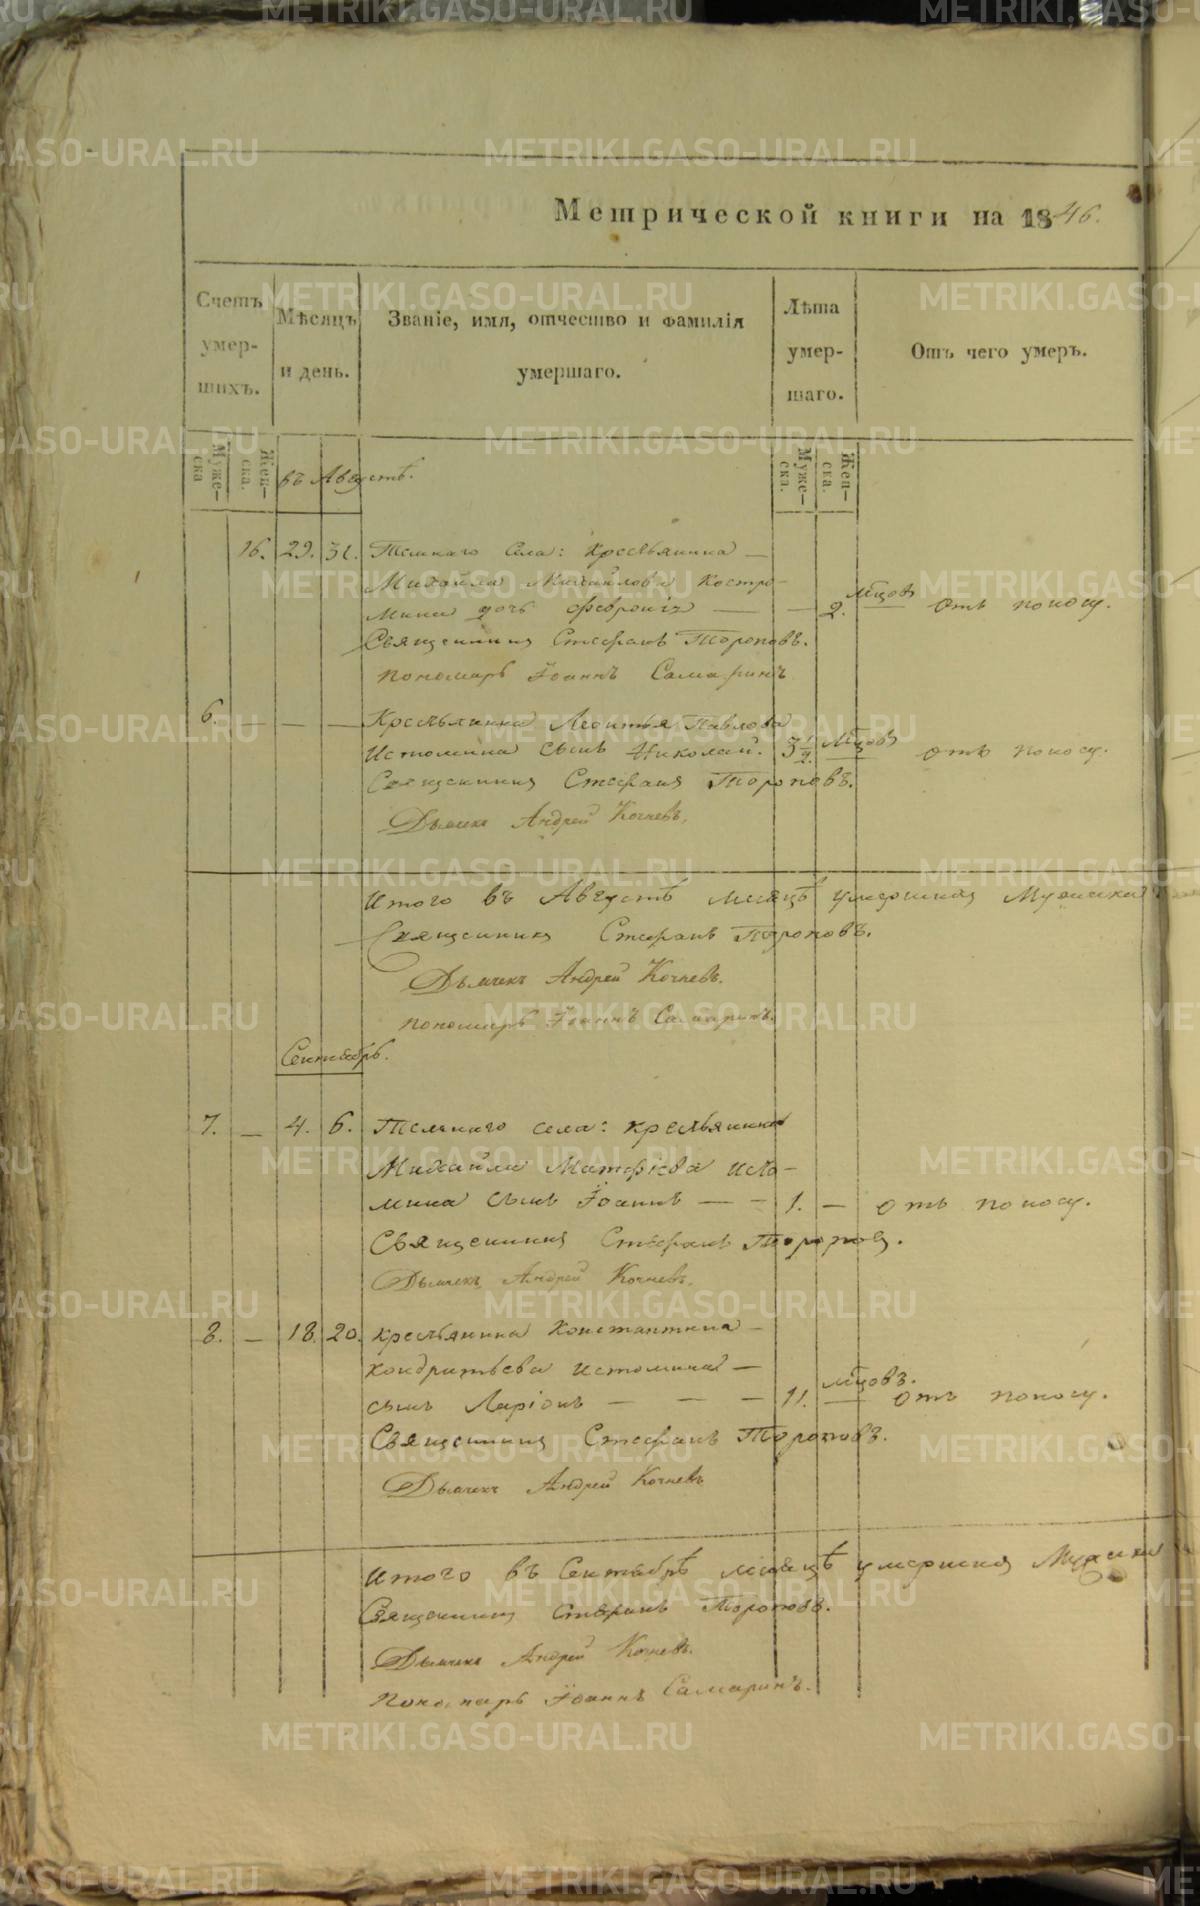 Метрической книги на 1846.
Счетъ умер- шихъ.
Мѣсяцъ и день.
Званіе, имя, отчество и фамилія умершаго.
Лѣта умер- шаго.
Отъ чего умеръ.
Муже- ска
Жен- ска.
въ Августѣ.
Муже- ска.
Жен- ска.
16. 29. 31. села: крестьянина —
Михайла Михайлова Костро-
мина дочь Февронія — — 2. мцовъ отъ поносу.
Священникъ Стефанъ Тороповъ.
Пономарь Іоаннъ Самаринъ
6. — — — Крестьянина Леонтья Павлова
Истомина сынъ Николай. 3 1/2. мцовъ — отъ поносу.
Священникъ Стефанъ Тороповъ.
Дьячекъ Андрей Кочневъ.
Итого въ Августѣ месяцѣ умершихъ
Священникъ Стефанъ Тороповъ.
Дьячекъ Андрей Кочневъ.
Пономарь Іоаннъ Самаринъ.
Сентябрь.
7. — 4. 6. села: крестьянина
Михайла Матфіева Исто-
мина сынъ Іоаннъ — — 1. — отъ поносу.
Священникъ Стефанъ Тороповъ.
Дьячекъ Андрей Кочневъ.
8. — 18. 20. крестьянина Константина —
Кондратьева Истомина —
сынъ Ларіонъ — — — 11. мцовъ. — отъ поносу.
Священникъ Стефанъ Тороповъ.
Дьячекъ Андрей Кочневъ
Итого въ Сентябрѣ месяцѣ умершихъ
Священникъ Стефанъ Тороповъ.
Дьячекъ Андрей Кочневъ.
Пономарь Іоаннъ Самаринъ.
METRIKI.GASO-URAL.RU